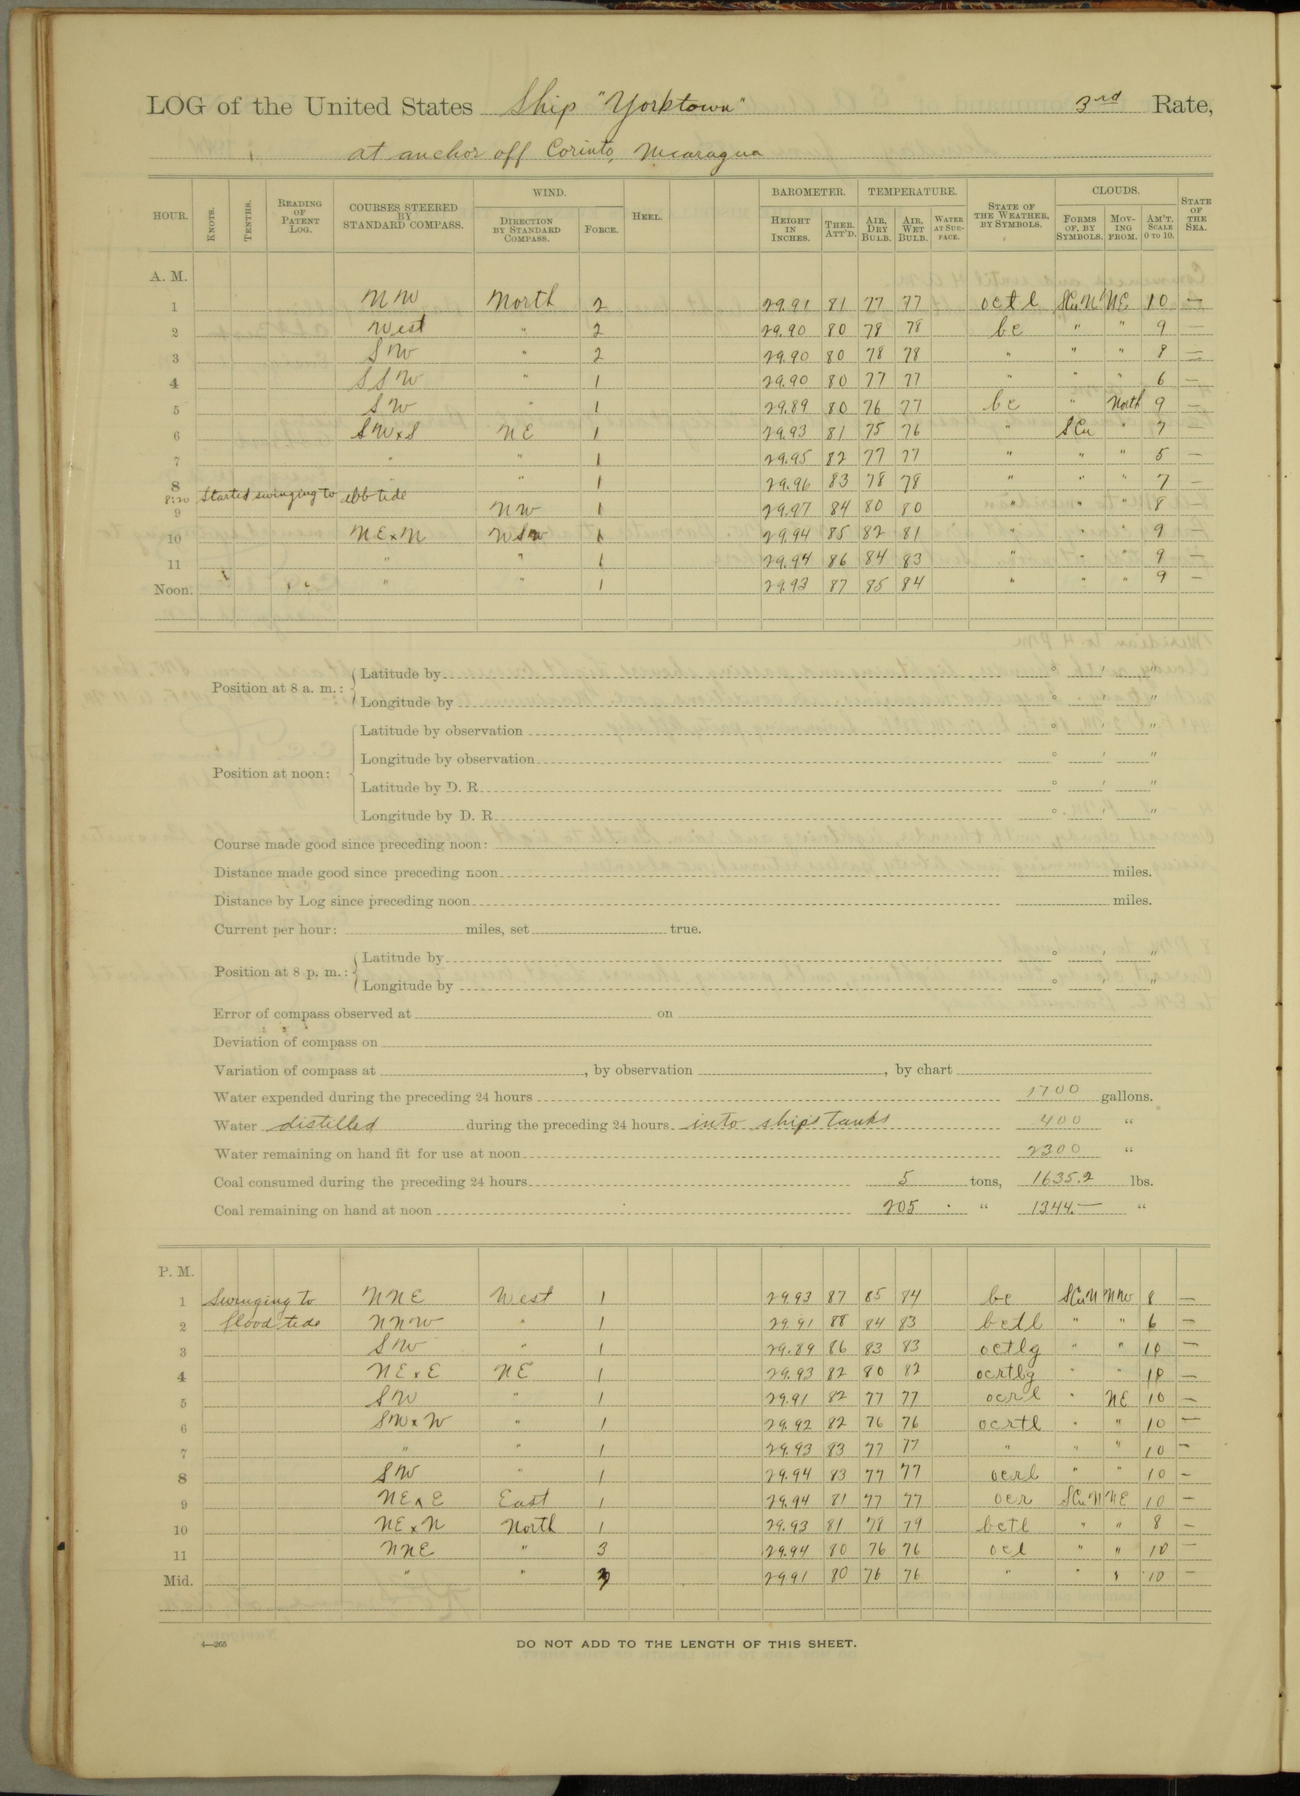 LOG of the United States Ship "Yorktown" 3rd Rate,
at anchor off Corinto, Nicaragua
HOUR. KNOTS. TENTHS. READING OF PATENT LOG. COURSES STEERED BY STANDARD COMPASS. WIND. DIRECTION BY STANDARD COMPASS. FORCE. HEEL. BAROMETER. HEIGHT IN INCHES. THER. ATT'D. TEMPERATURE. AIR, DRY BULB. AIR, WET BULB. WATER AT SURFACE. STATE OF THE WEATHER, BY SYMBOLS. CLOUDS. FORMS OF, BY SYMBOLS. MOVING FROM. AM'T. SCALE 0 TO 10. STATE OF THE SEA.
A. M.
1 NW North 2 29.91 81 77 77 octl SCuN NE 10 —
2 West " 2 29.90 80 78 78 bc " " 9 —
3 SW " 2 29.90 80 78 78 " " " 8 —
4 SSW " 1 29.90 80 77 77 " " " 6 —
5 SW " 1 29.89 80 76 77 bc " North 9 —
6 SWxS NE 1 29.93 81 75 76 " SCu " 7 —
7 " " 1 29.95 82 77 77 " " " 5 —
8 " " 1 29.96 83 78 78 " " " 7 —
8:20 Started swinging to ebb tide
9 NW 1 29.97 84 80 80 " " " 8 —
10 NExN WSW 1 29.94 85 82 81 " " " 9 —
11 " " 1 29.94 86 84 83 " " " 9 —
Noon. " " 1 29.93 87 85 84 " " " 9 —
Position at 8 a. m.: Latitude by ° ′ ″
Longitude by ° ′ ″
Position at noon: Latitude by observation ° ′ ″
Longitude by observation ° ′ ″
Latitude by D. R. ° ′ ″
Longitude by D. R. ° ′ ″
Course made good since preceding noon:
Distance made good since preceding noon miles.
Distance by Log since preceding noon miles.
Current per hour: miles, set true.
Position at 8 p. m.: Latitude by ° ′ ″
Longitude by ° ′ ″
Error of compass observed at on
Deviation of compass on
Variation of compass at , by observation , by chart
Water expended during the preceding 24 hours 1700 gallons.
Water distilled during the preceding 24 hours into ships tanks 400 "
Water remaining on hand fit for use at noon 2300 "
Coal consumed during the preceding 24 hours 5 tons, 1635.2 lbs.
Coal remaining on hand at noon 205 " 1344.— "
P. M.
1 Swinging to NNE West 1 29.93 87 85 84 bc SCuN NNW 8 —
2 flood tide NNW " 1 29.91 88 84 83 bctl " " 6 —
3 SW " 1 29.89 86 83 83 octlg " " 10 —
4 NExE NE 1 29.93 82 80 82 ocrtlg " " 10 —
5 SW " 1 29.91 82 77 77 ocrl " NE 10 —
6 SWxW " 1 29.92 82 76 76 ocrtl " " 10 —
7 " " 1 29.93 83 77 77 " " " 10 —
8 SW " 1 29.94 83 77 77 ocrl " " 10 —
9 NExE East 1 29.94 81 77 77 ocr SCuN NE 10 —
10 NExN North 1 29.93 81 78 79 bctl " " 8 —
11 NNE " 3 29.94 80 76 76 ocl " " 10 —
Mid. " " 29.91 80 76 76 " " " 10 —
4—265
DO NOT ADD TO THE LENGTH OF THIS SHEET.